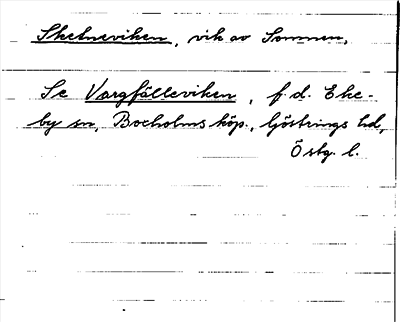 Sketneviken, vik av Sommen.
Se Vargfälleviken, f.d. Eke-
by sn, Boxholms köp., Göstrings hd,
Östg. l.